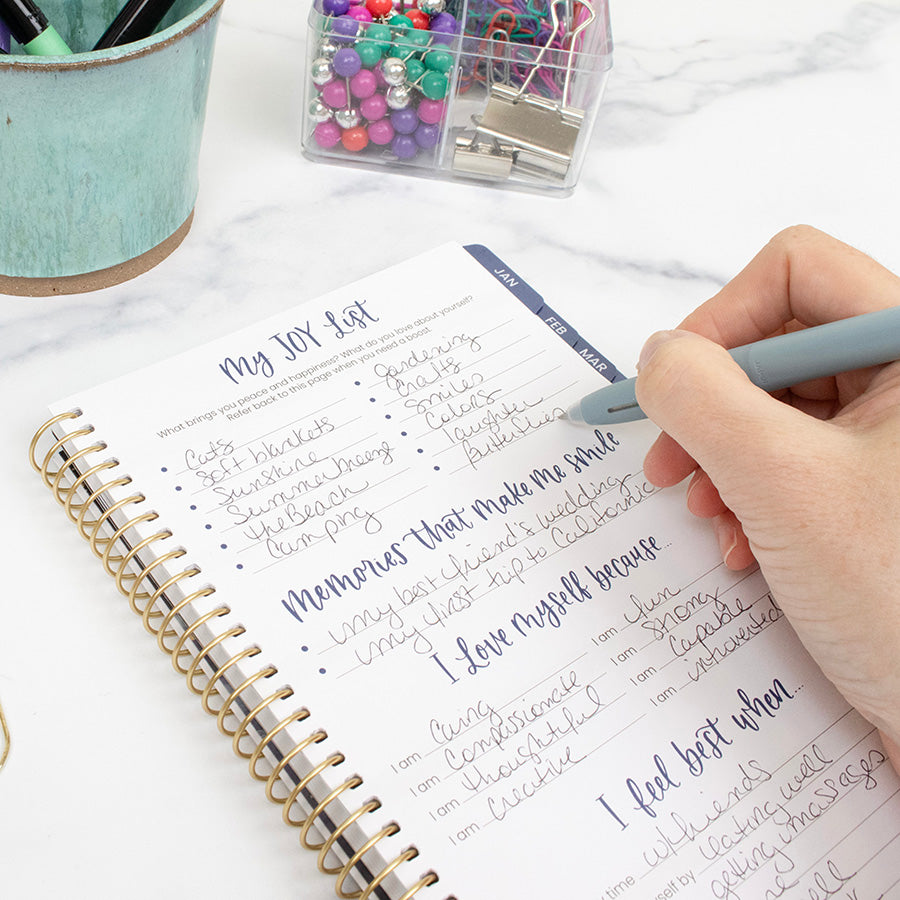 JAN
FEB
MAR
My JOY List
What brings you peace and happiness? What do you love about yourself?
Refer back to this page when you need a boost.
Cats
Soft blankets
Sunshine
Summer breeze
The Beach
Camping
Gardening
Crafts
Smiles
Colors
Laughter
Butterflies
Memories that make me smile
My best friend's wedding
My first trip to California
I Love myself because...
I am caring
I am compassionate
I am thoughtful
I am creative
I am fun
I am strong
I am capable
I am introverted
I feel best when...
time w/friends
myself by eating well
getting massages